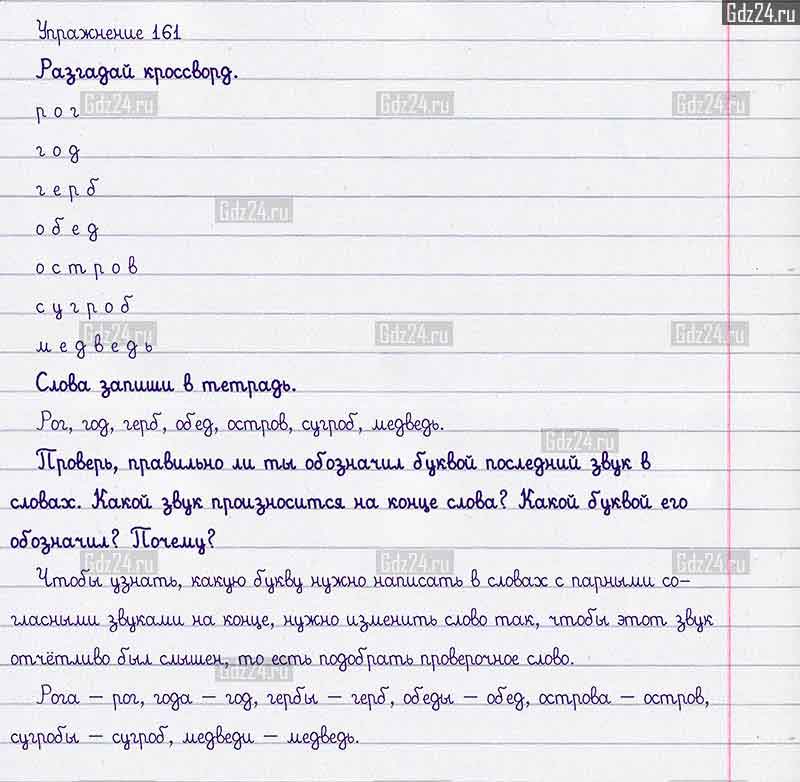 Gdz24.ru
Упражнение 161
Разгадай кроссворд.
Gdz24.ru Gdz24.ru Gdz24.ru
р о г
г о д
г е р б
Gdz24.ru
о б е д
о с т р о в
с у г р о б
Gdz24.ru Gdz24.ru Gdz24.ru
м е д в е д ь
Слова запиши в тетрадь.
Рог, год, герб, обед, остров, сугроб, медведь.
Gdz24.ru
Проверь, правильно ли ты обозначил буквой последний звук в
словах. Какой звук произносится на конце слова? Какой буквой его
обозначил? Почему?
Gdz24.ru Gdz24.ru Gdz24.ru
Чтобы узнать, какую букву нужно написать в словах с парными со-
гласными звуками на конце, нужно изменить слово так, чтобы этот звук
отчётливо был слышен, то есть подобрать проверочное слово.
Gdz24.ru
Рога – рог, года – год, гербы – герб, обеды – обед, острова – остров,
сугробы – сугроб, медведи – медведь.